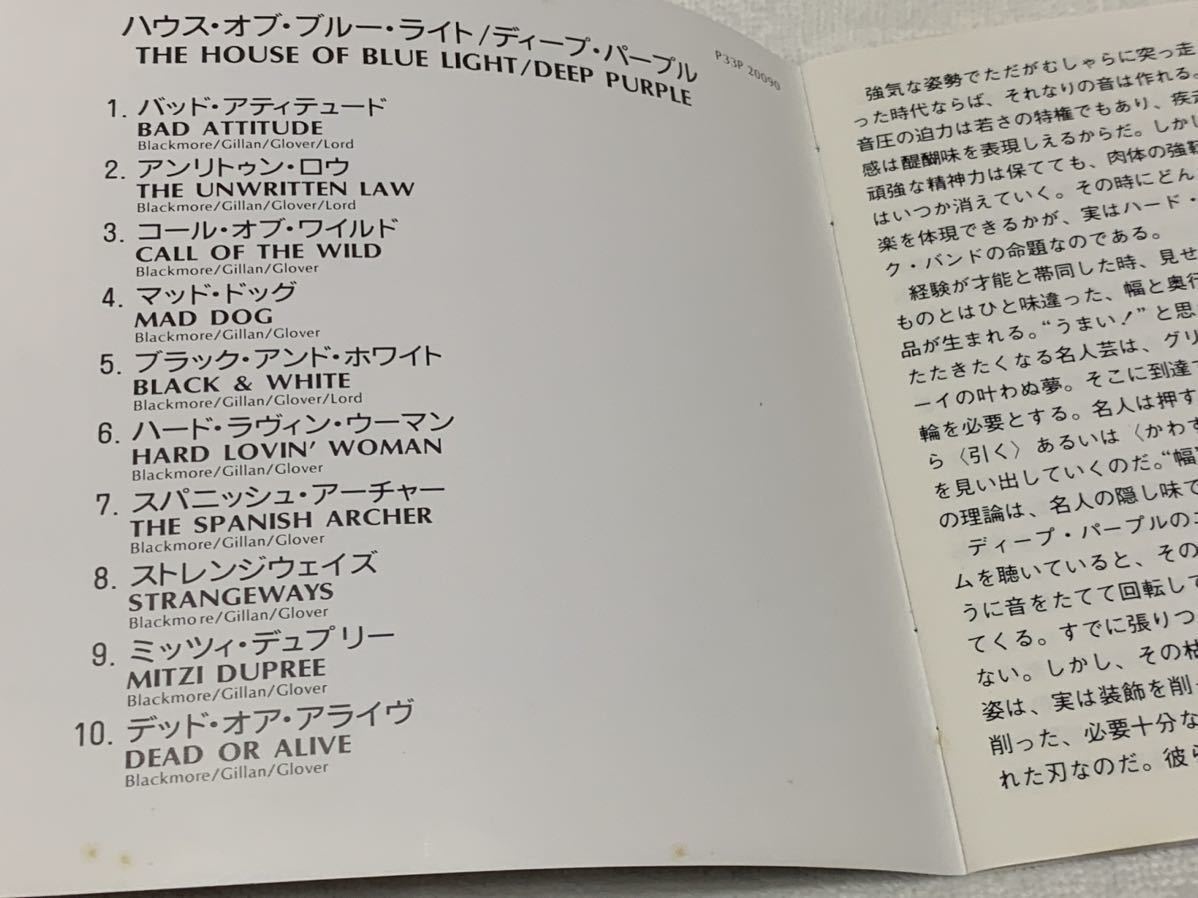 ハウス・オブ・ブルー・ライト/ディープ・パープル
THE HOUSE OF BLUE LIGHT/DEEP PURPLE
P33P 20090
1. バッド・アティテュード
BAD ATTITUDE
Blackmore/Gillan/Glover/Lord
2. アンリトゥン・ロウ
THE UNWRITTEN LAW
Blackmore/Gillan/Glover/Lord
3. コール・オブ・ワイルド
CALL OF THE WILD
Blackmore/Gillan/Glover
4. マッド・ドッグ
MAD DOG
Blackmore/Gillan/Glover
5. ブラック・アンド・ホワイト
BLACK & WHITE
Blackmore/Gillan/Glover/Lord
6. ハード・ラヴィン・ウーマン
HARD LOVIN' WOMAN
Blackmore/Gillan/Glover
7. スパニッシュ・アーチャー
THE SPANISH ARCHER
Blackmore/Gillan/Glover
8. ストレンジウェイズ
STRANGEWAYS
Blackmore/Gillan/Glover
9. ミッツィ・デュプリー
MITZI DUPREE
Blackmore/Gillan/Glover
10. デッド・オア・アライヴ
DEAD OR ALIVE
Blackmore/Gillan/Glover
強気な姿勢でただがむしゃらに突っ走
った時代ならば、それなりの音は作れる。
音圧の迫力は若さの特権でもあり、疾走
感は醍醐味を表現しえるからだ。しかし
頑強な精神力は保てても、肉体の強靭
はいつか消えていく。その時にどん
楽を体現できるかが、実はハード・
ク・バンドの命題なのである。
経験が才能と帯同した時、見せ
ものとはひと味違った、幅と奥行
品が生まれる。“うまい！”と思
たたきたくなる名人芸は、グリ
ーイの叶わぬ夢。そこに到達
輪を必要とする。名人は押す
ら〈引く〉あるいは〈かわす
を見い出していくのだ。“幅
の理論は、名人の隠し味で
ディープ・パープルの
ムを聴いていると、その
うに音をたてて回転して
てくる。すでに張りつ
ない。しかし、その枯
姿は、実は装飾を削
削った、必要十分な
れた刃なのだ。彼ら